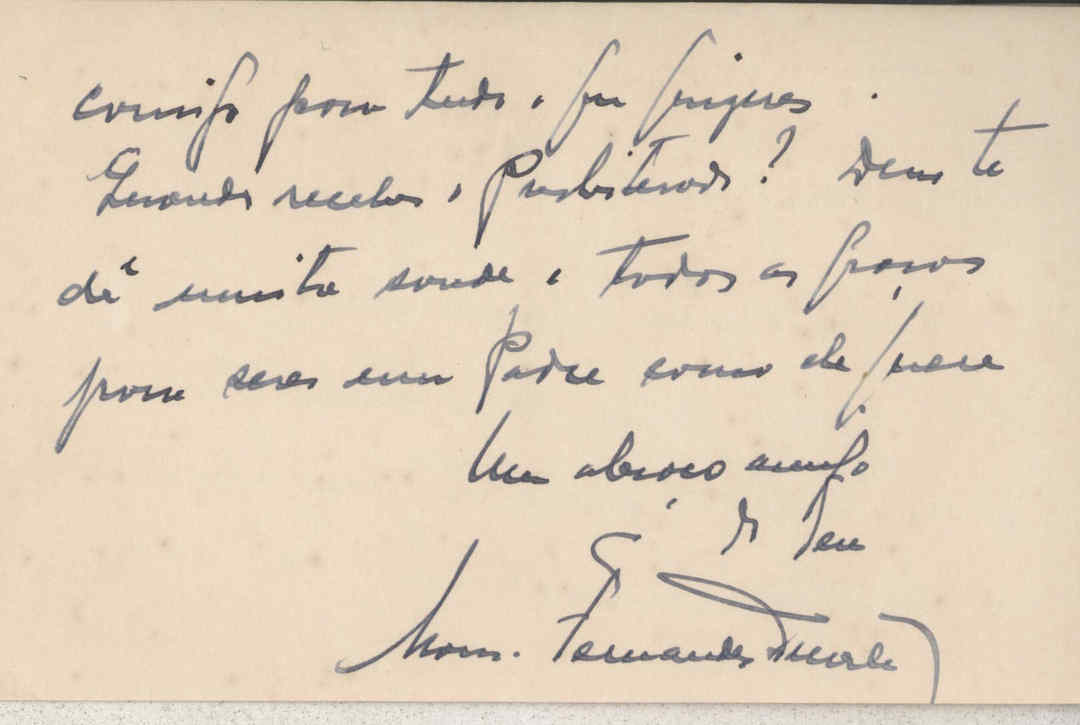 comigo para tudo o que quizeres.
Quando recebes o Presbiterado? Deus te
dê muita saude e todas as graças
para seres um Padre como ele quere
Um abraço amigo
do teu
Mons. Fernandes Duarte